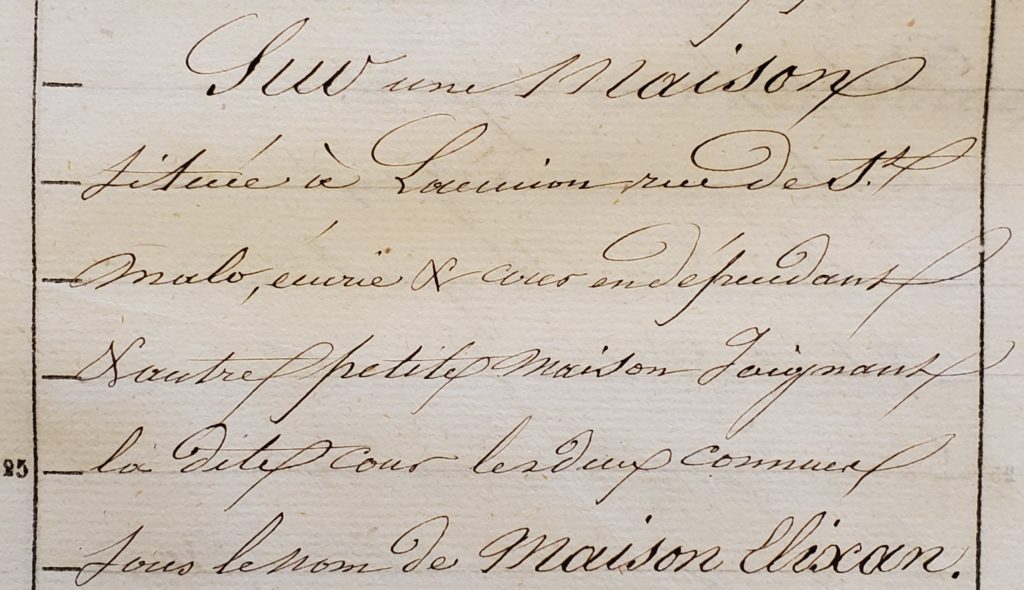 Sur une Maison
située à Lannion rue de St
Malo, écurie & cour en dépendant
& autre petite Maison Joignant
25 la dite cour les deux connues
sous le nom de Maison Elixan.